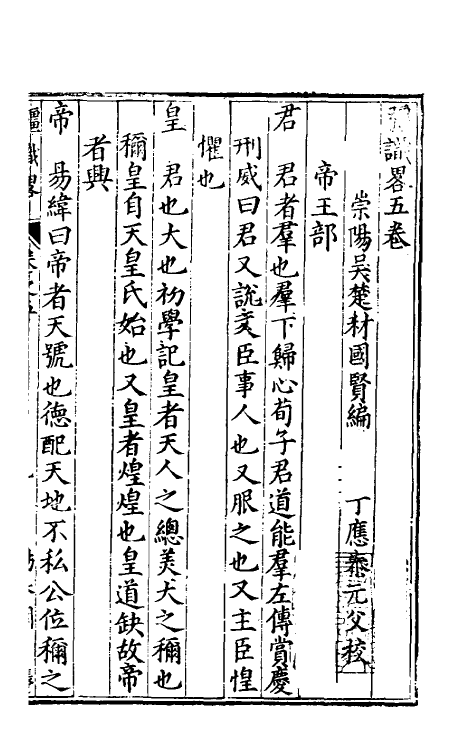 彊識畧五卷
崇陽吳楚材國賢編 丁應泰元父挍
帝王部
君 君者羣也羣下歸心荀子君道能羣左傳賞慶
刑威曰君又説文臣事人也又服之也又主臣惶
懼也
皇 君也大也初學記皇者天人之總美大之稱也
稱皇自天皇氏始也又皇者煌煌也皇道缺故帝
者興
帝 易緯曰帝者天號也德配天地不私公位稱之
彊識畧